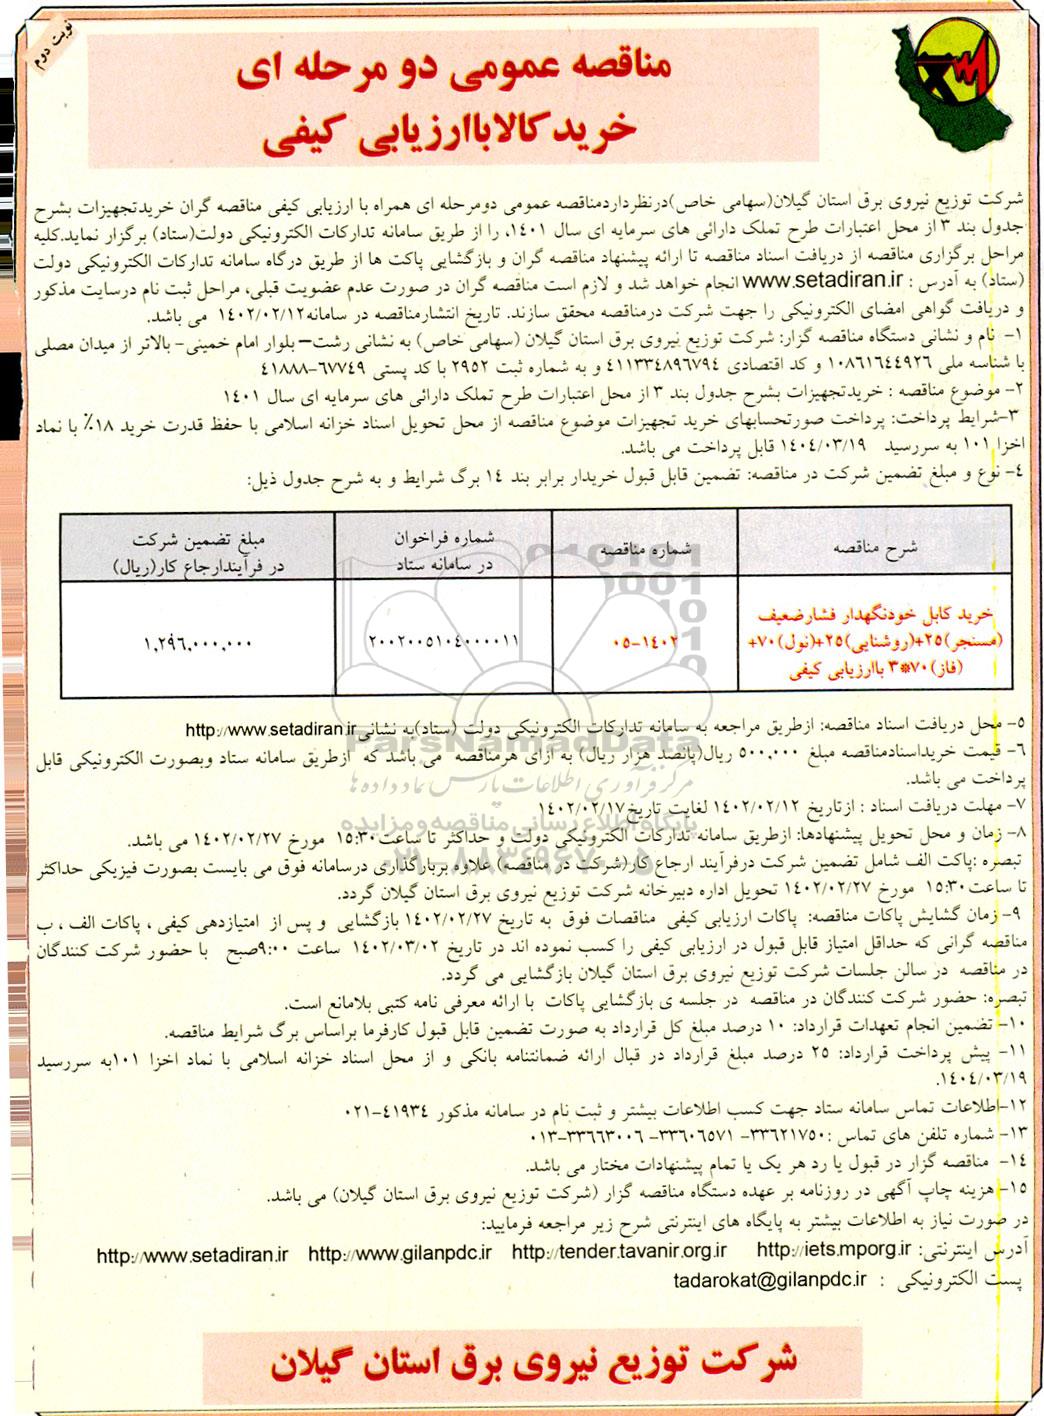 نوبت دوم
مناقصه عمومی دو مرحله ای
خریدکالاباارزیابی کیفی
شرکت توزیع نیروی برق استان گیلان(سهامی خاص)درنظرداردمناقصه عمومی دومرحله ای همراه با ارزیابی کیفی مناقصه گران خریدتجهیزات بشرح
جدول بند ۳ از محل اعتبارات طرح تملک دارائی های سرمایه ای سال ۱۴۰۱، را از طریق سامانه تدارکات الکترونیکی دولت(ستاد) برگزار نماید.کلیه
مراحل برگزاری مناقصه از دریافت اسناد مناقصه تا ارائه پیشنهاد مناقصه گران و بازگشایی پاکت ها از طریق درگاه سامانه تدارکات الکترونیکی دولت
(ستاد) به آدرس : www.setadiran.ir انجام خواهد شد و لازم است مناقصه گران در صورت عدم عضویت قبلی، مراحل ثبت نام درسایت مذکور
و دریافت گواهی امضای الکترونیکی را جهت شرکت درمناقصه محقق سازند. تاریخ انتشارمناقصه در سامانه۱۴۰۲/۰۲/۱۲ می باشد.
۱- نام و نشانی دستگاه مناقصه گزار: شرکت توزیع نیروی برق استان گیلان (سهامی خاص) به نشانی رشت– بلوار امام خمینی- بالاتر از میدان مصلی
با شناسه ملی ۱۰۸۶۱۶۴۴۹۲۶ و کد اقتصادی ۴۱۱۳۳۴۸۹۶۷۹۴ و به شماره ثبت ۲۹۵۲ با کد پستی ۶۷۷۴۹-۴۱۸۸۸
۲- موضوع مناقصه : خریدتجهیزات بشرح جدول بند ۳ از محل اعتبارات طرح تملک دارائی های سرمایه ای سال ۱۴۰۱
۳-شرایط پرداخت: پرداخت صورتحسابهای خرید تجهیزات موضوع مناقصه از محل تحویل اسناد خزانه اسلامی با حفظ قدرت خرید ۱۸٪ با نماد
اخزا ۱۰۱ به سررسید ۱۴۰۴/۰۳/۱۹ قابل پرداخت می باشد.
۴- نوع و مبلغ تضمین شرکت در مناقصه: تضمین قابل قبول خریدار برابر بند ۱۴ برگ شرایط و به شرح جدول ذیل:
شرح مناقصه
شماره مناقصه
شماره فراخوان
در سامانه ستاد
مبلغ تضمین شرکت
در فرآیندارجاع کار(ریال)
خرید کابل خودنگهدار فشارضعیف
(مسنجر)۲۵+(روشنایی)۲۵+(نول)۷۰+
(فاز)۷۰*۳ باارزیابی کیفی
۰۵-۱۴۰۲
۲۰۰۲۰۰۵۱۰۴۰۰۰۰۱۱
۱,۲۹۶,۰۰۰,۰۰۰
۵- محل دریافت اسناد مناقصه: ازطریق مراجعه به سامانه تدارکات الکترونیکی دولت (ستاد)به نشانیhttp://www.setadiran.ir
ParsNamadData
۶- قیمت خریداسنادمناقصه مبلغ ۵۰۰,۰۰۰ ریال(پانصد هزار ریال) به ازای هرمناقصه می باشد که ازطریق سامانه ستاد وبصورت الکترونیکی قابل
پرداخت می باشد.
مرکز فرآوری اطلاعات پارس نماد داده ها
۷- مهلت دریافت اسناد : ازتاریخ ۱۴۰۲/۰۲/۱۲ لغایت تاریخ۱۴۰۲/۰۲/۱۷
پایگاه اطلاع رسانی مناقصه و مزایده
۸- زمان و محل تحویل پیشنهادها: ازطریق سامانه تدارکات الکترونیکی دولت و حداکثر تا ساعت۱۵:۳۰ مورخ ۱۴۰۲/۰۲/۲۷ می باشد.
تبصره :پاکت الف شامل تضمین شرکت درفرآیند ارجاع کار(شرکت در مناقصه) علاوه بربارگذاری درسامانه فوق می بایست بصورت فیزیکی حداکثر
تا ساعت۱۵:۳۰ مورخ ۱۴۰۲/۰۲/۲۷ تحویل اداره دبیرخانه شرکت توزیع نیروی برق استان گیلان گردد.
۹- زمان گشایش پاکات مناقصه: پاکات ارزیابی کیفی مناقصات فوق به تاریخ ۱۴۰۲/۰۲/۲۷ بازگشایی و پس از امتیازدهی کیفی ، پاکات الف ، ب
مناقصه گرانی که حداقل امتیاز قابل قبول در ارزیابی کیفی را کسب نموده اند در تاریخ ۱۴۰۲/۰۳/۰۲ ساعت ۹:۰۰صبح با حضور شرکت کنندگان
در مناقصه در سالن جلسات شرکت توزیع نیروی برق استان گیلان بازگشایی می گردد.
تبصره: حضور شرکت کنندگان در مناقصه در جلسه ی بازگشایی پاکات با ارائه معرفی نامه کتبی بلامانع است.
۱۰- تضمین انجام تعهدات قرارداد: ۱۰ درصد مبلغ کل قرارداد به صورت تضمین قابل قبول کارفرما براساس برگ شرایط مناقصه.
۱۱- پیش پرداخت قرارداد: ۲۵ درصد مبلغ قرارداد در قبال ارائه ضمانتنامه بانکی و از محل اسناد خزانه اسلامی با نماد اخزا ۱۰۱به سررسید
۱۴۰۴/۰۳/۱۹.
۱۲-اطلاعات تماس سامانه ستاد جهت کسب اطلاعات بیشتر و ثبت نام در سامانه مذکور ۴۱۹۳۴-۰۲۱
۱۳- شماره تلفن های تماس :۳۳۶۲۱۷۵۰- ۳۳۶۰۶۵۷۱- ۳۳۶۶۳۰۰۶-۰۱۳
۱۴- مناقصه گزار در قبول یا رد هر یک یا تمام پیشنهادات مختار می باشد.
۱۵- هزینه چاپ آگهی در روزنامه بر عهده دستگاه مناقصه گزار (شرکت توزیع نیروی برق استان گیلان) می باشد.
در صورت نیاز به اطلاعات بیشتر به پایگاه های اینترنتی شرح زیر مراجعه فرمایید:
آدرس اینترنتی: http://iets.mporg.ir http://tender.tavanir.org.ir http://www.gilanpdc.ir http://www.setadiran.ir
پست الکترونیکی : tadarokat@gilanpdc.ir
شرکت توزیع نیروی برق استان گیلان